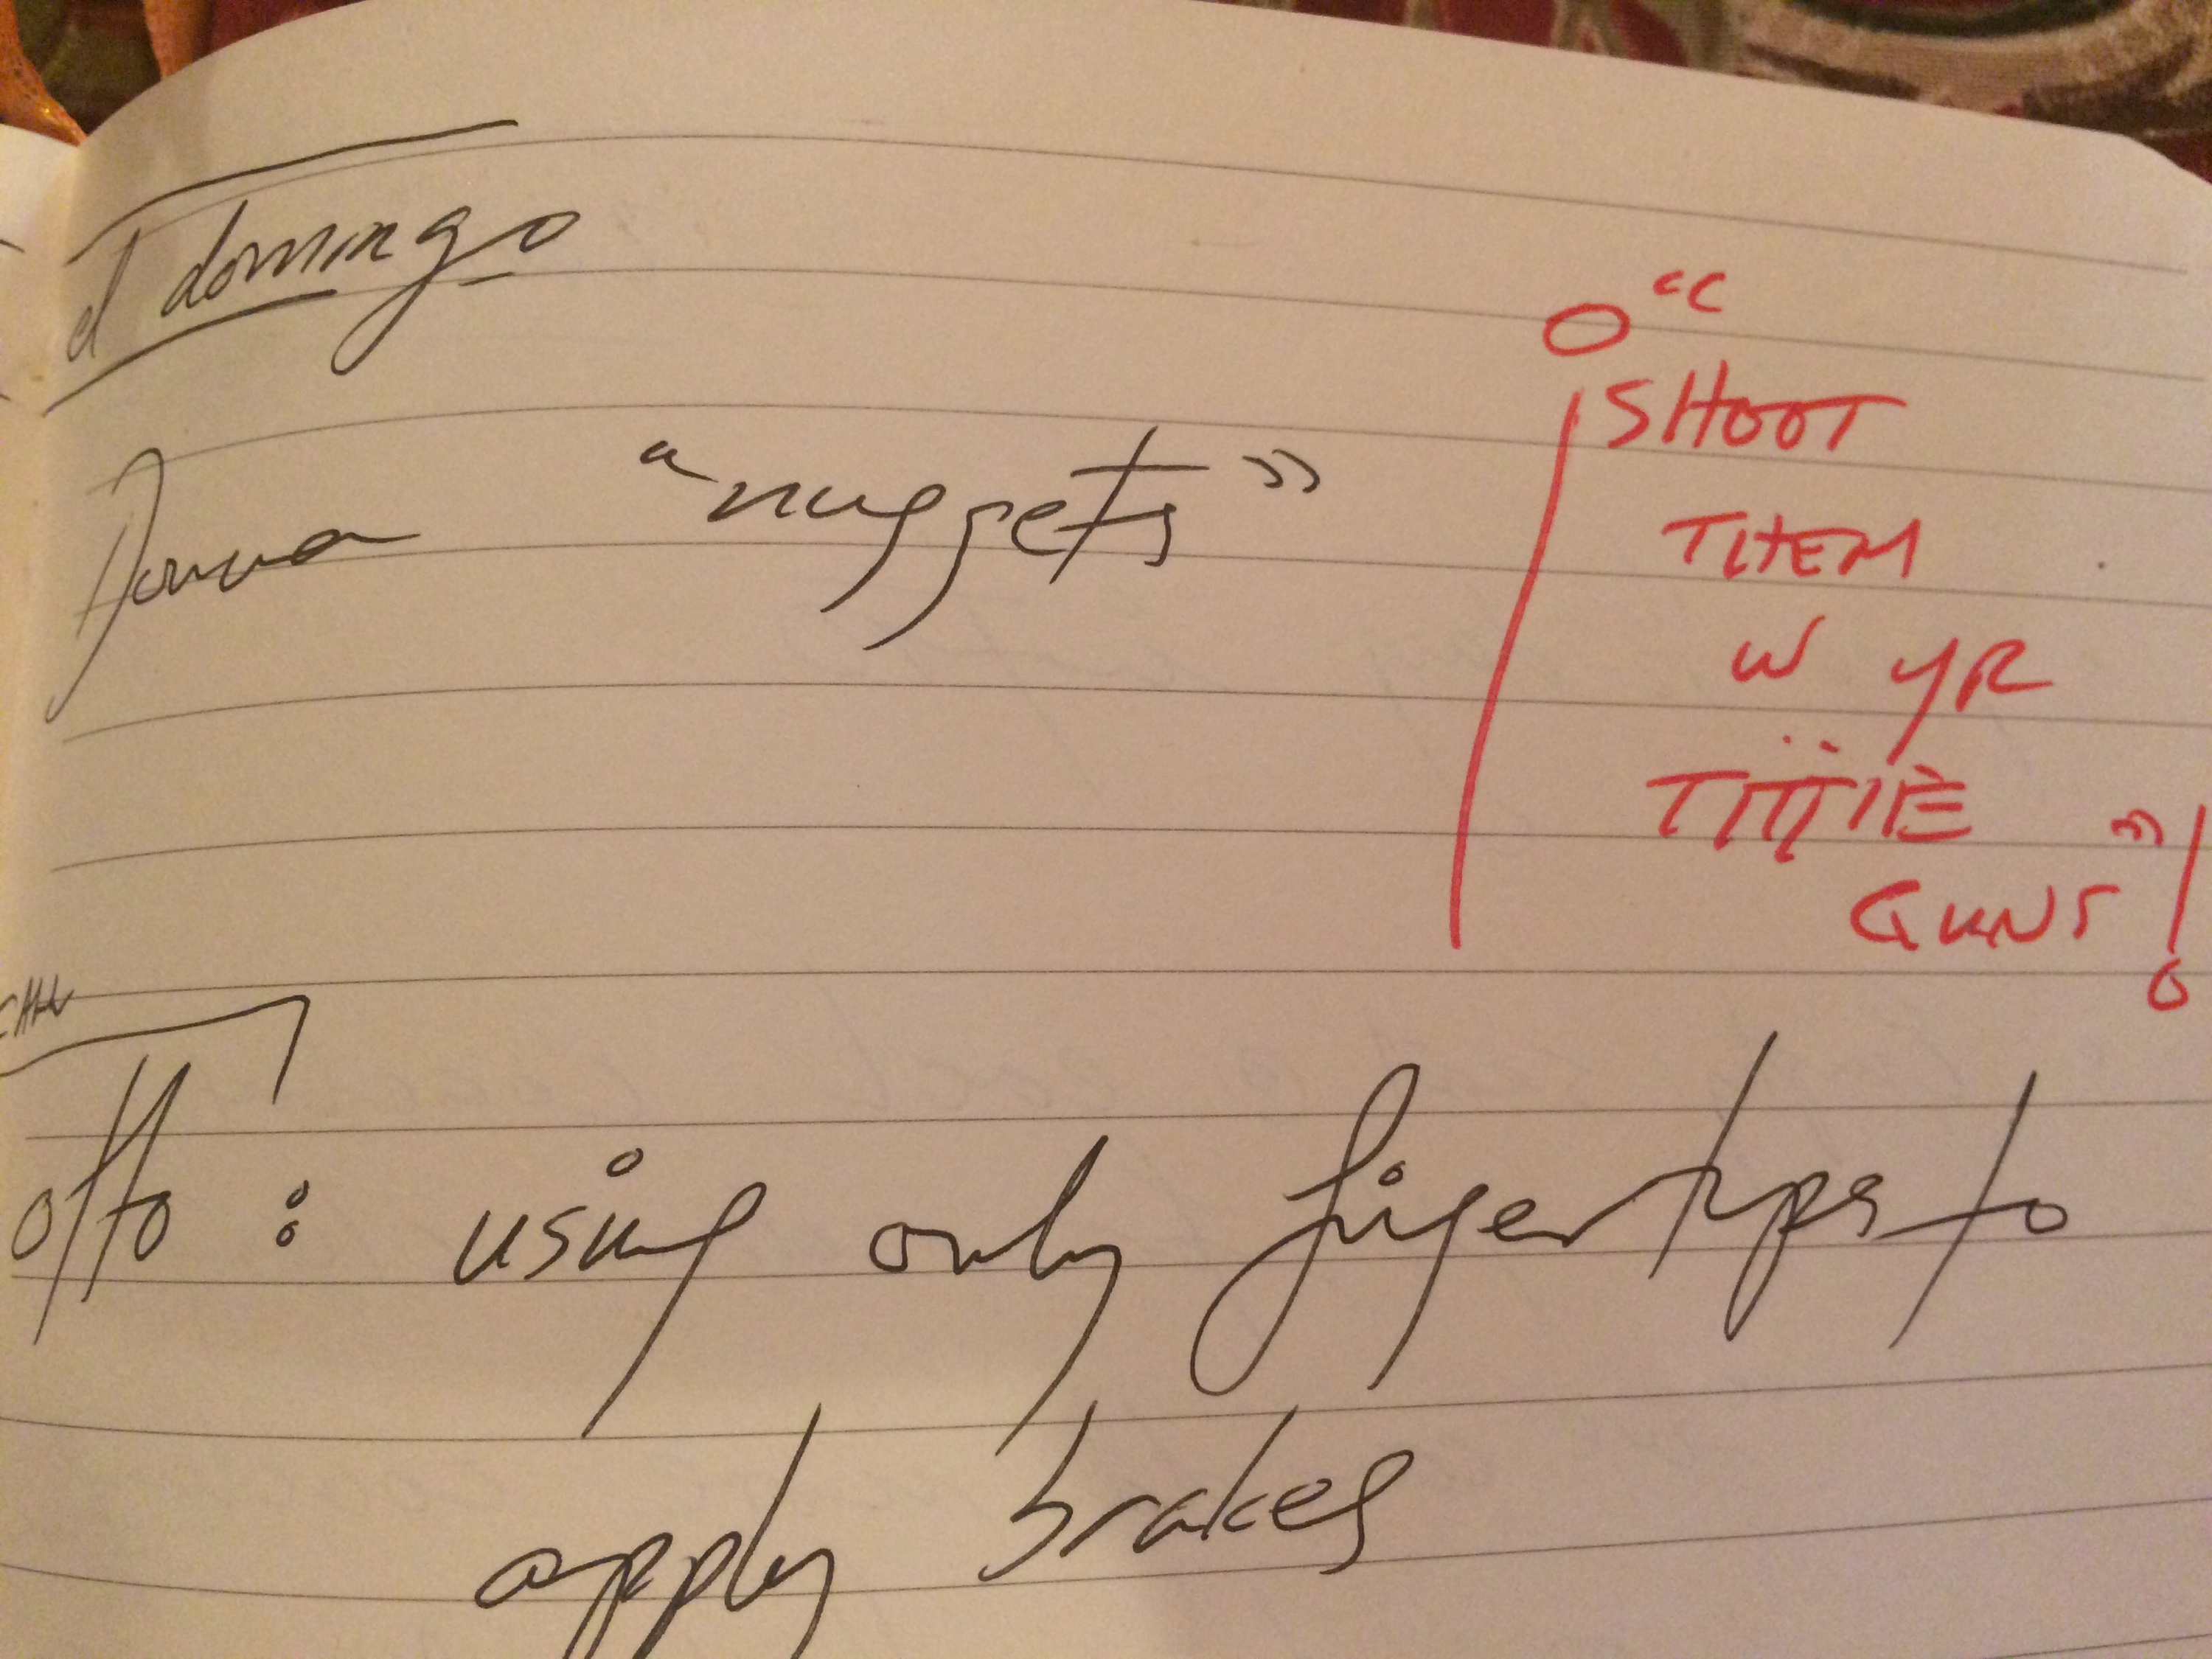 el domingo
Donna "nuggets"
O "
SHOOT
THEM
W YR
GUNS"!
otto: using only figertips to
apply brakes